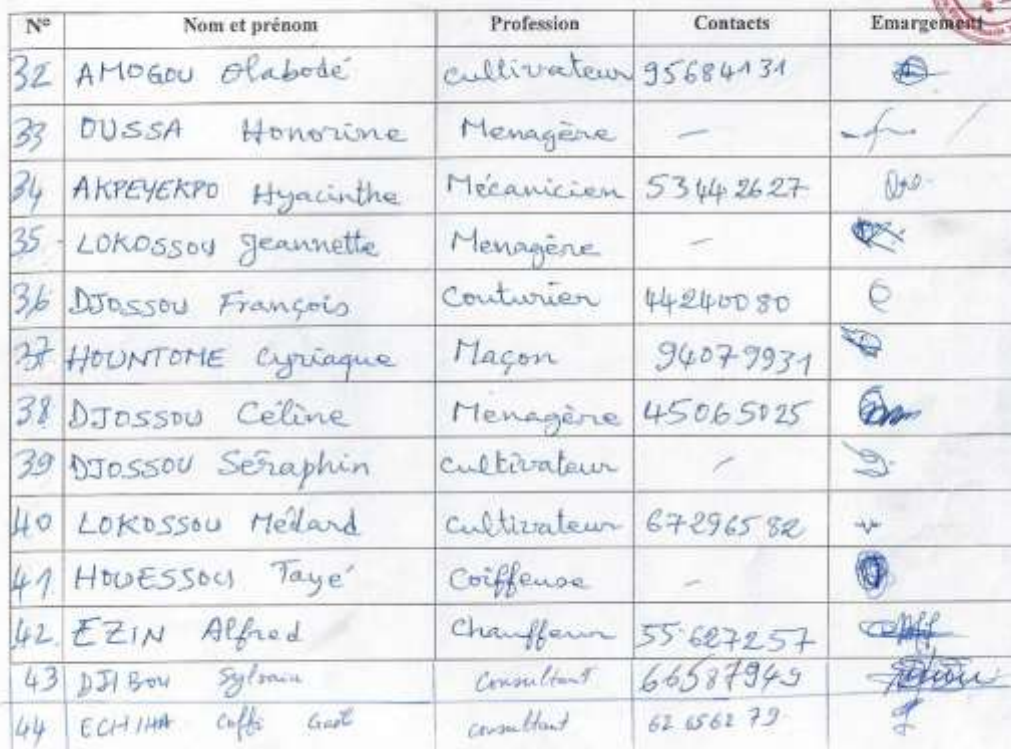 N° Nom et prénom Profession Contacts Emargement
32 AMOGOU Olabodé cultivateur 95684131
33 OUSSA Honorine Menagère —
34 AKPEYEKPO Hyacinthe Mécanicien 53442627
35 LOKOSSOU Jeannette Menagère —
36 DJOSSOU François Couturier 44240080
37 HOUNTOME Cyriaque Maçon 94079931
38 DJOSSOU Céline Menagère 45065025
39 DJOSSOU Séraphin cultivateur —
40 LOKOSSOU Médard cultivateur 67296582
41 HOUESSOU Tayé Coiffeuse —
42 EZIN Alfred Chauffeur 55627257
43 DJIBOU Sylvain consultant 66587949
44 ECHIHA Coffi consultant 62656279